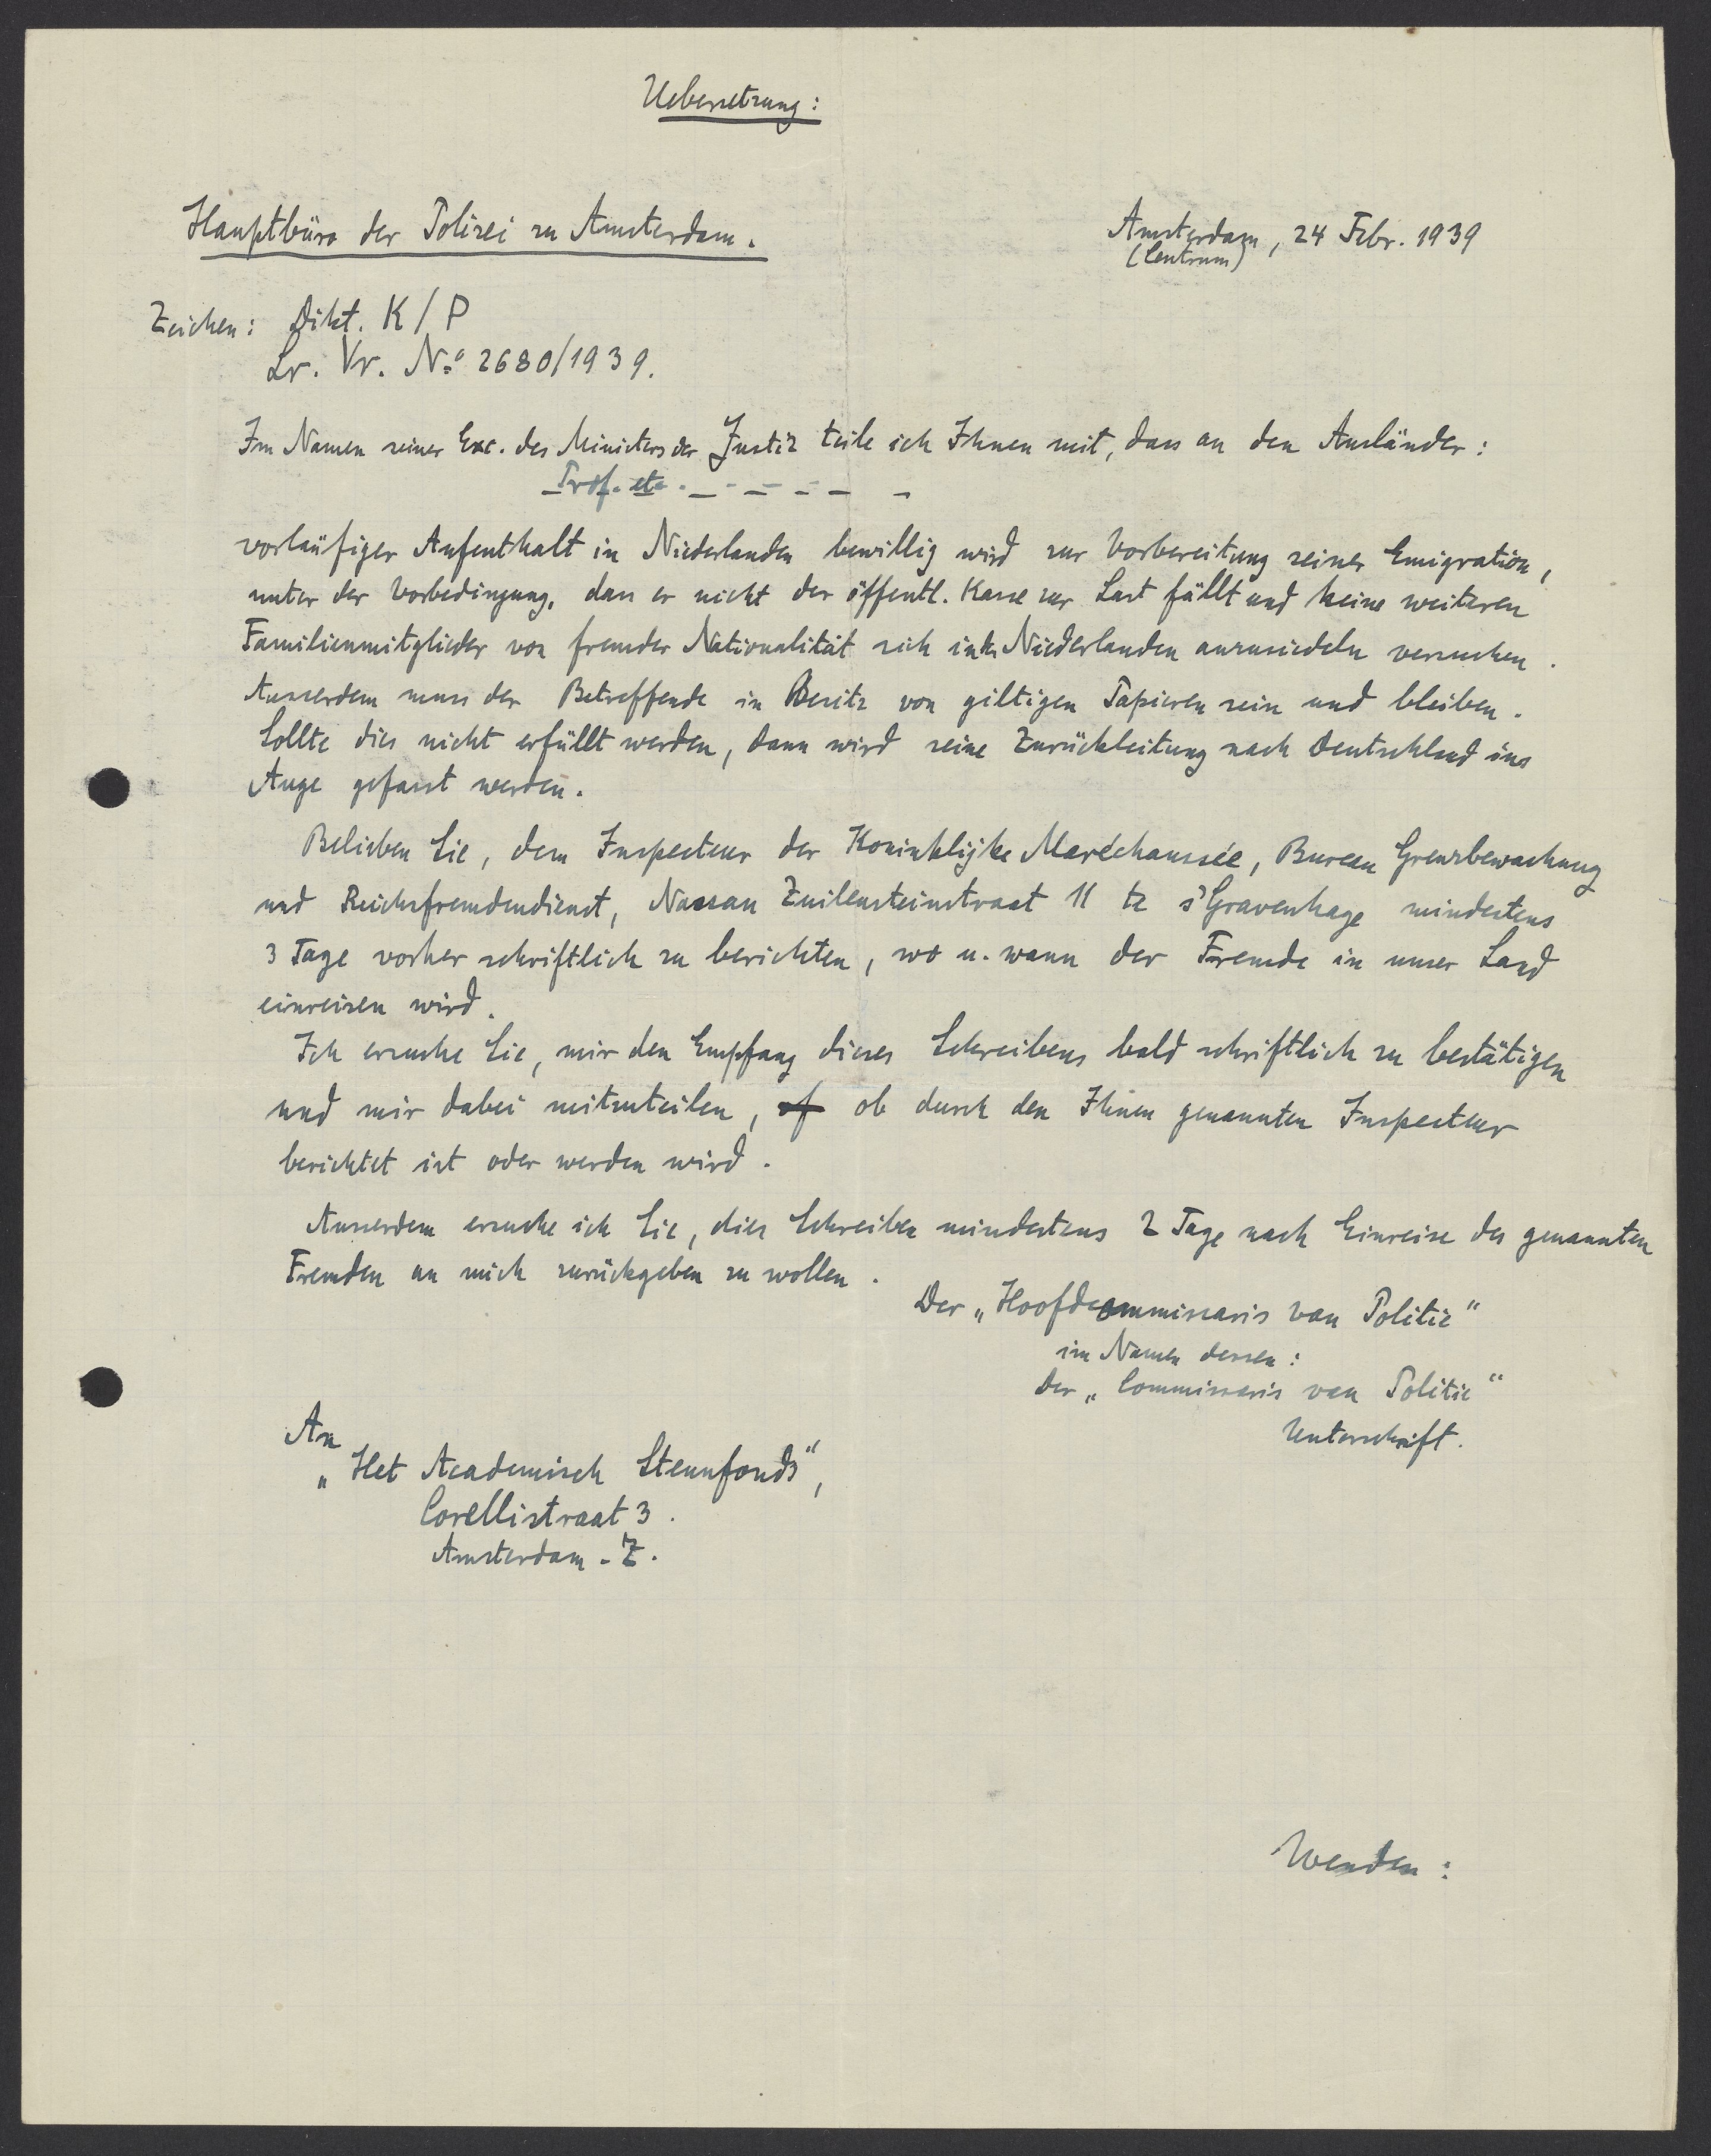 Uebersetzung:
Hauptbüro der Polizei zu Amsterdam.
Amsterdam, 24 Febr. 1939
(Centrum)
Zeichen: Dikt. K/P
Lr. Vr. No 2680/1939.
Im Namen seiner Exc. des Ministers der Justiz teile ich Ihnen mit, dass an den Ausländer:
Prof. etc. - - - - - -
vorläufiger Aufenthalt in Niederlanden bewillig wird zur Vorbereitung seiner Emigration,
unter der Vorbedingung, dass er nicht der öffentl. Kasse zur Last fällt und keine weiteren
Familienmitglieder von fremder Nationalität sich in den Niederlanden anzusiedeln versuchen.
Ausserdem muss der Betreffende in Besitz von giltigen Papieren sein und bleiben.
Sollte dies nicht erfüllt werden, dann wird seine Zurückleitung nach Deutschland ins
Auge gefasst werden.
Belieben Sie, dem Inspecteur der Koninklijke Maréchaussée, Bureau Grenzbewachung
und Reichsfremdendienst, Nassau Zuilensteinstraat 11 te s'Gravenhage mindestens
3 Tage vorher schriftlich zu berichten, wo u. wann der Fremde in unser Land
einreisen wird.
Ich ersuche Sie, mir den Empfang dieses Schreibens bald schriftlich zu bestätigen
und mir dabei mitzuteilen, of ob durch den Ihnen genannten Inspecteur
berichtet ist oder werden wird.
Ausserdem ersuche ich Sie, dies Schreiben mindestens 2 Tage nach Einreise des genannten
Fremden an mich zurückgeben zu wollen.
Der „Hoofdcommissaris van Politie"
im Namen dessen:
der „Commissaris van Politie"
Unterschrift.
An
„Het Academisch Steunfonds",
Corellistraat 3.
Amsterdam - Z.
Wenden: